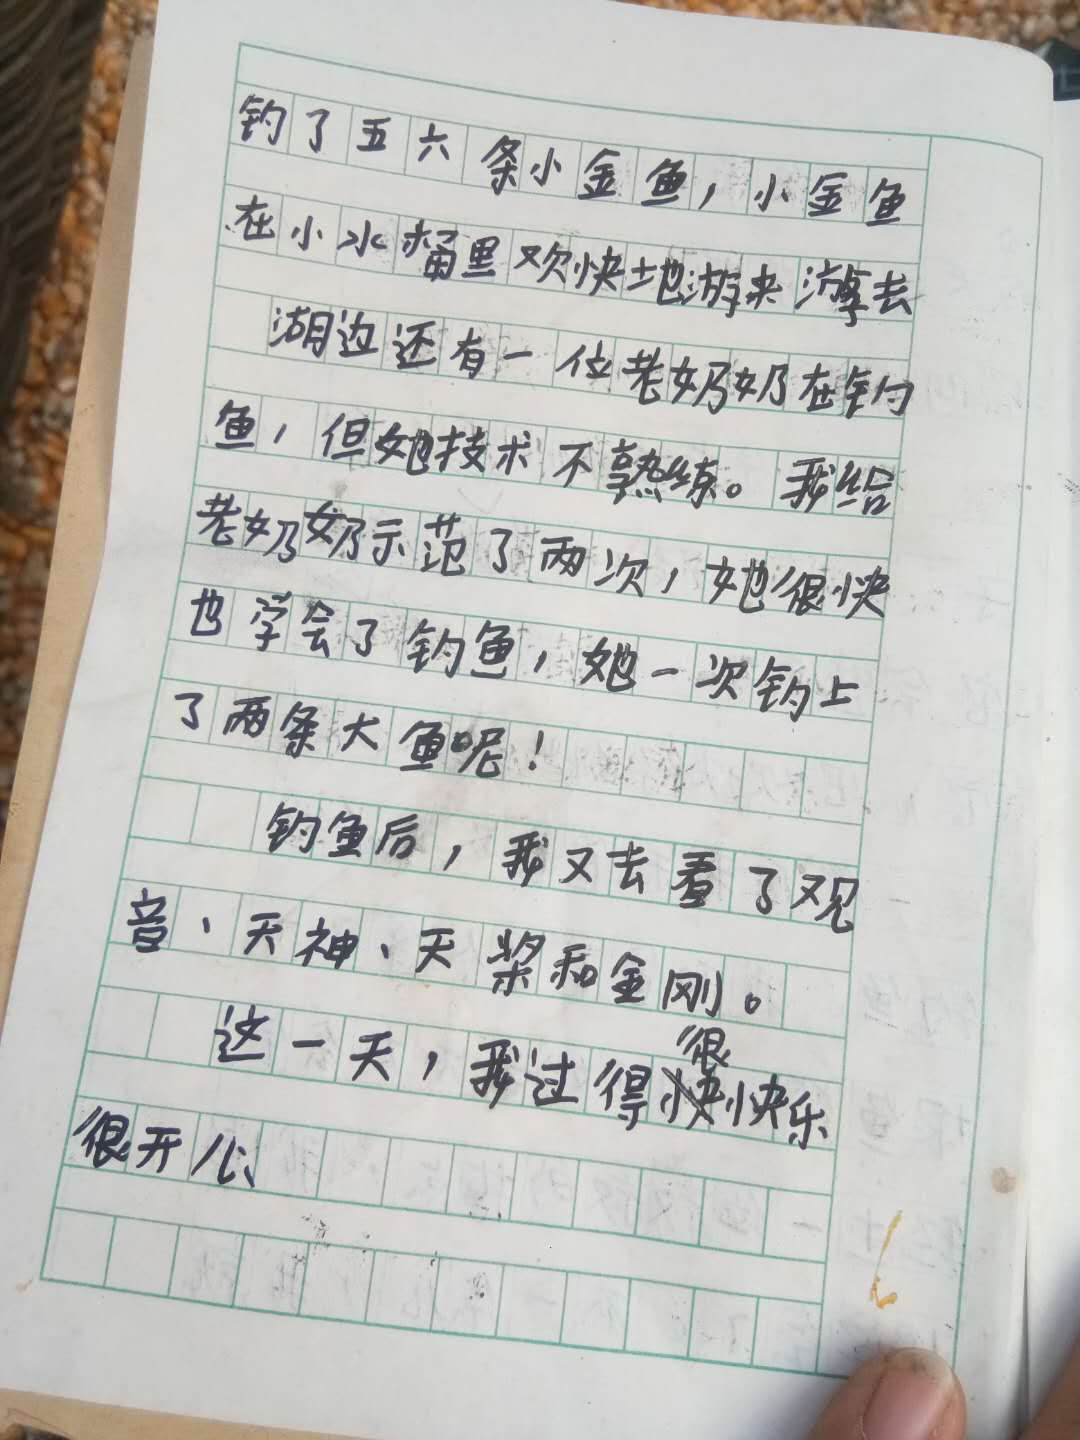 钓了五六条小金鱼，小金鱼
在小水桶里欢快地游来游去
湖边还有一位老奶奶在钓
鱼，但她技术不熟练。我给
老奶奶示范了两次，她很快
也学会了钓鱼，她一次钓上
了两条大鱼呢！
钓鱼后，我又去看了观
音、天神、天桨和金刚。
这一天，我过得很快乐
很开心